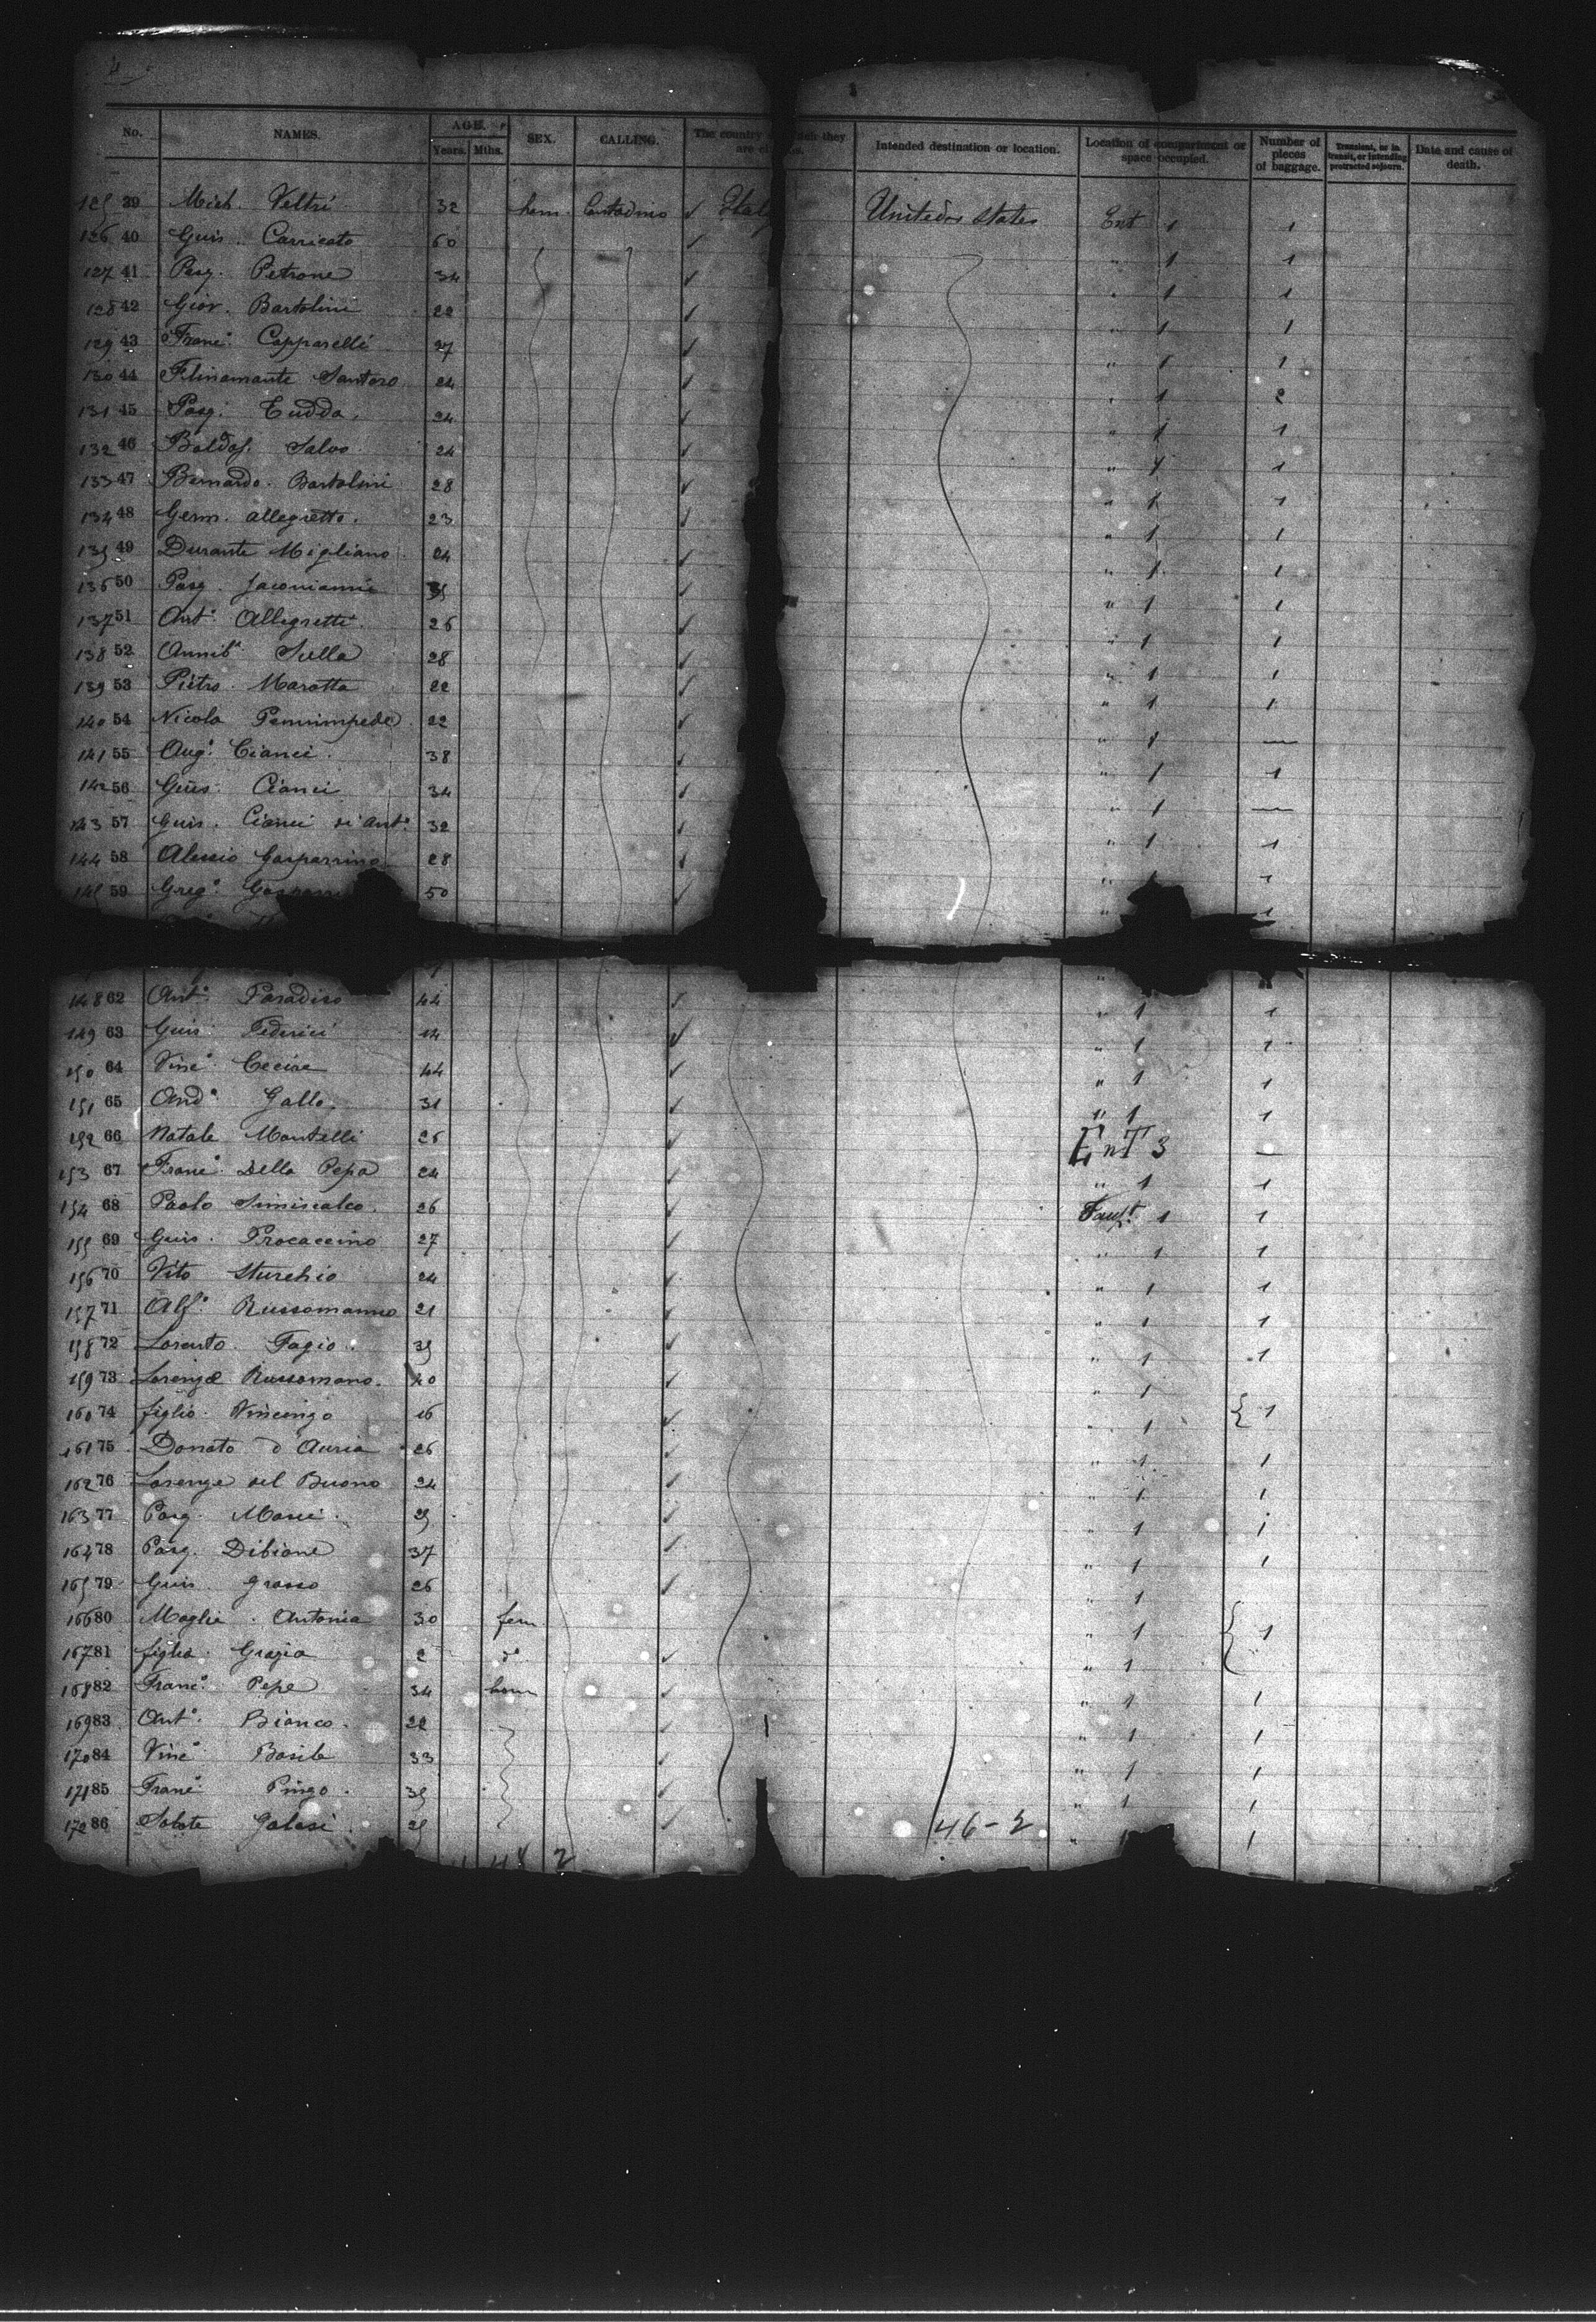 4
No. NAMES. AGE. Years. Mths. SEX. CALLING. The country of which they are citizens. Intended destination or location. Location of compartment or space occupied. Number of pieces of baggage. Transient, or in transit, or intending protracted sojourn. Date and cause of death.
125 39 Mich. Veltri 32 hom. Contadino ✓ Italy United States Ent 1 1
126 40 Guis. Carricato 60 ✓ " 1 1
127 41 Pasq. Petrone 34 ✓ " 1 1
128 42 Giov. Bartolini 22 ✓ " 1 1
129 43 Franc.º Capparelli 27 ✓ " 1 1
130 44 Santoro 24 ✓ " 1 2
131 45 Pasq. Tudda. 24 ✓ " 1 1
132 46 Baldas. Salvo 24 ✓ " 1 1
133 47 Bernardo. Bartolini 28 ✓ " 1 1
134 48 Germ. Allegretto. 23 ✓ " 1 1
135 49 Durante Migliano 24 ✓ " 1 1
136 50 Pasq. Jaconianni 35 ✓ " 1 1
137 51 Ant.º Allegretti. 26 ✓ " 1 1
138 52 Annib.e Sella 28 ✓ " 1 1
139 53 Pietro. Marotta 22 ✓ " 1 1
140 54 Nicola 22 ✓ " 1 —
141 55 Aug.º Cianci. 38 ✓ " 1 1
142 56 Guis. Cianci 34 ✓ " 1 —
143 57 Guis. Cianci di Ant.º 32 ✓ " 1 1
144 58 Alessio Gasparrino 28 ✓ " 1 1
145 59 Greg.º 50 ✓ " 1
148 62 Ant.º Paradiso 44 ✓ " 1 1
149 63 Guis. Federici 14 ✓ " 1 1
150 64 Vinc.º Cecire 44 ✓ " 1 1
151 65 And.ª Gallo. 31 ✓ " 1 1
152 66 Natale Mantelli 26 ✓ EnT 3 —
153 67 Franc.º Della Pepa 24 ✓ " 1 1
154 68 Paolo Siniscalco. 26 ✓ 1 1
155 69 Guis. Procaccino 27 ✓ " 1 1
156 70 Vito Sturchio 24 ✓ " 1 1
157 71 Alf.º Russomanno 21 ✓ " 1 1
158 72 Fagio. 35 ✓ " 1 1
159 73 Lorenzo Russomano. 40 ✓ " 1
160 74 figlio. Vincenzo 16 ✓ " 1 { 1
161 75 Donato d'Auria 26 ✓ " 1 1
162 76 Lorenzo del Buono 24 ✓ " 1 1
163 77 Pasq. Masci. 25 ✓ " 1 1
164 78 Pasq. Dibione 37 ✓ " 1 1
165 79 Guis. Grasso 26 ✓ " 1
166 80 Moglie. Antonia 30 fem " 1 { 1
167 81 figlia. Grazia 2 dº ✓ " 1
168 82 Franc.º Pepe 34 hom ✓ " 1 1
169 83 Ant.º Bianco. 22 ✓ " 1 1
170 84 Vinc.º Basile 33 ✓ " 1 1
171 85 Franc.º Pingo. 35 ✓ " 1 1
172 86 25 ✓ " 1
44 2 46-2